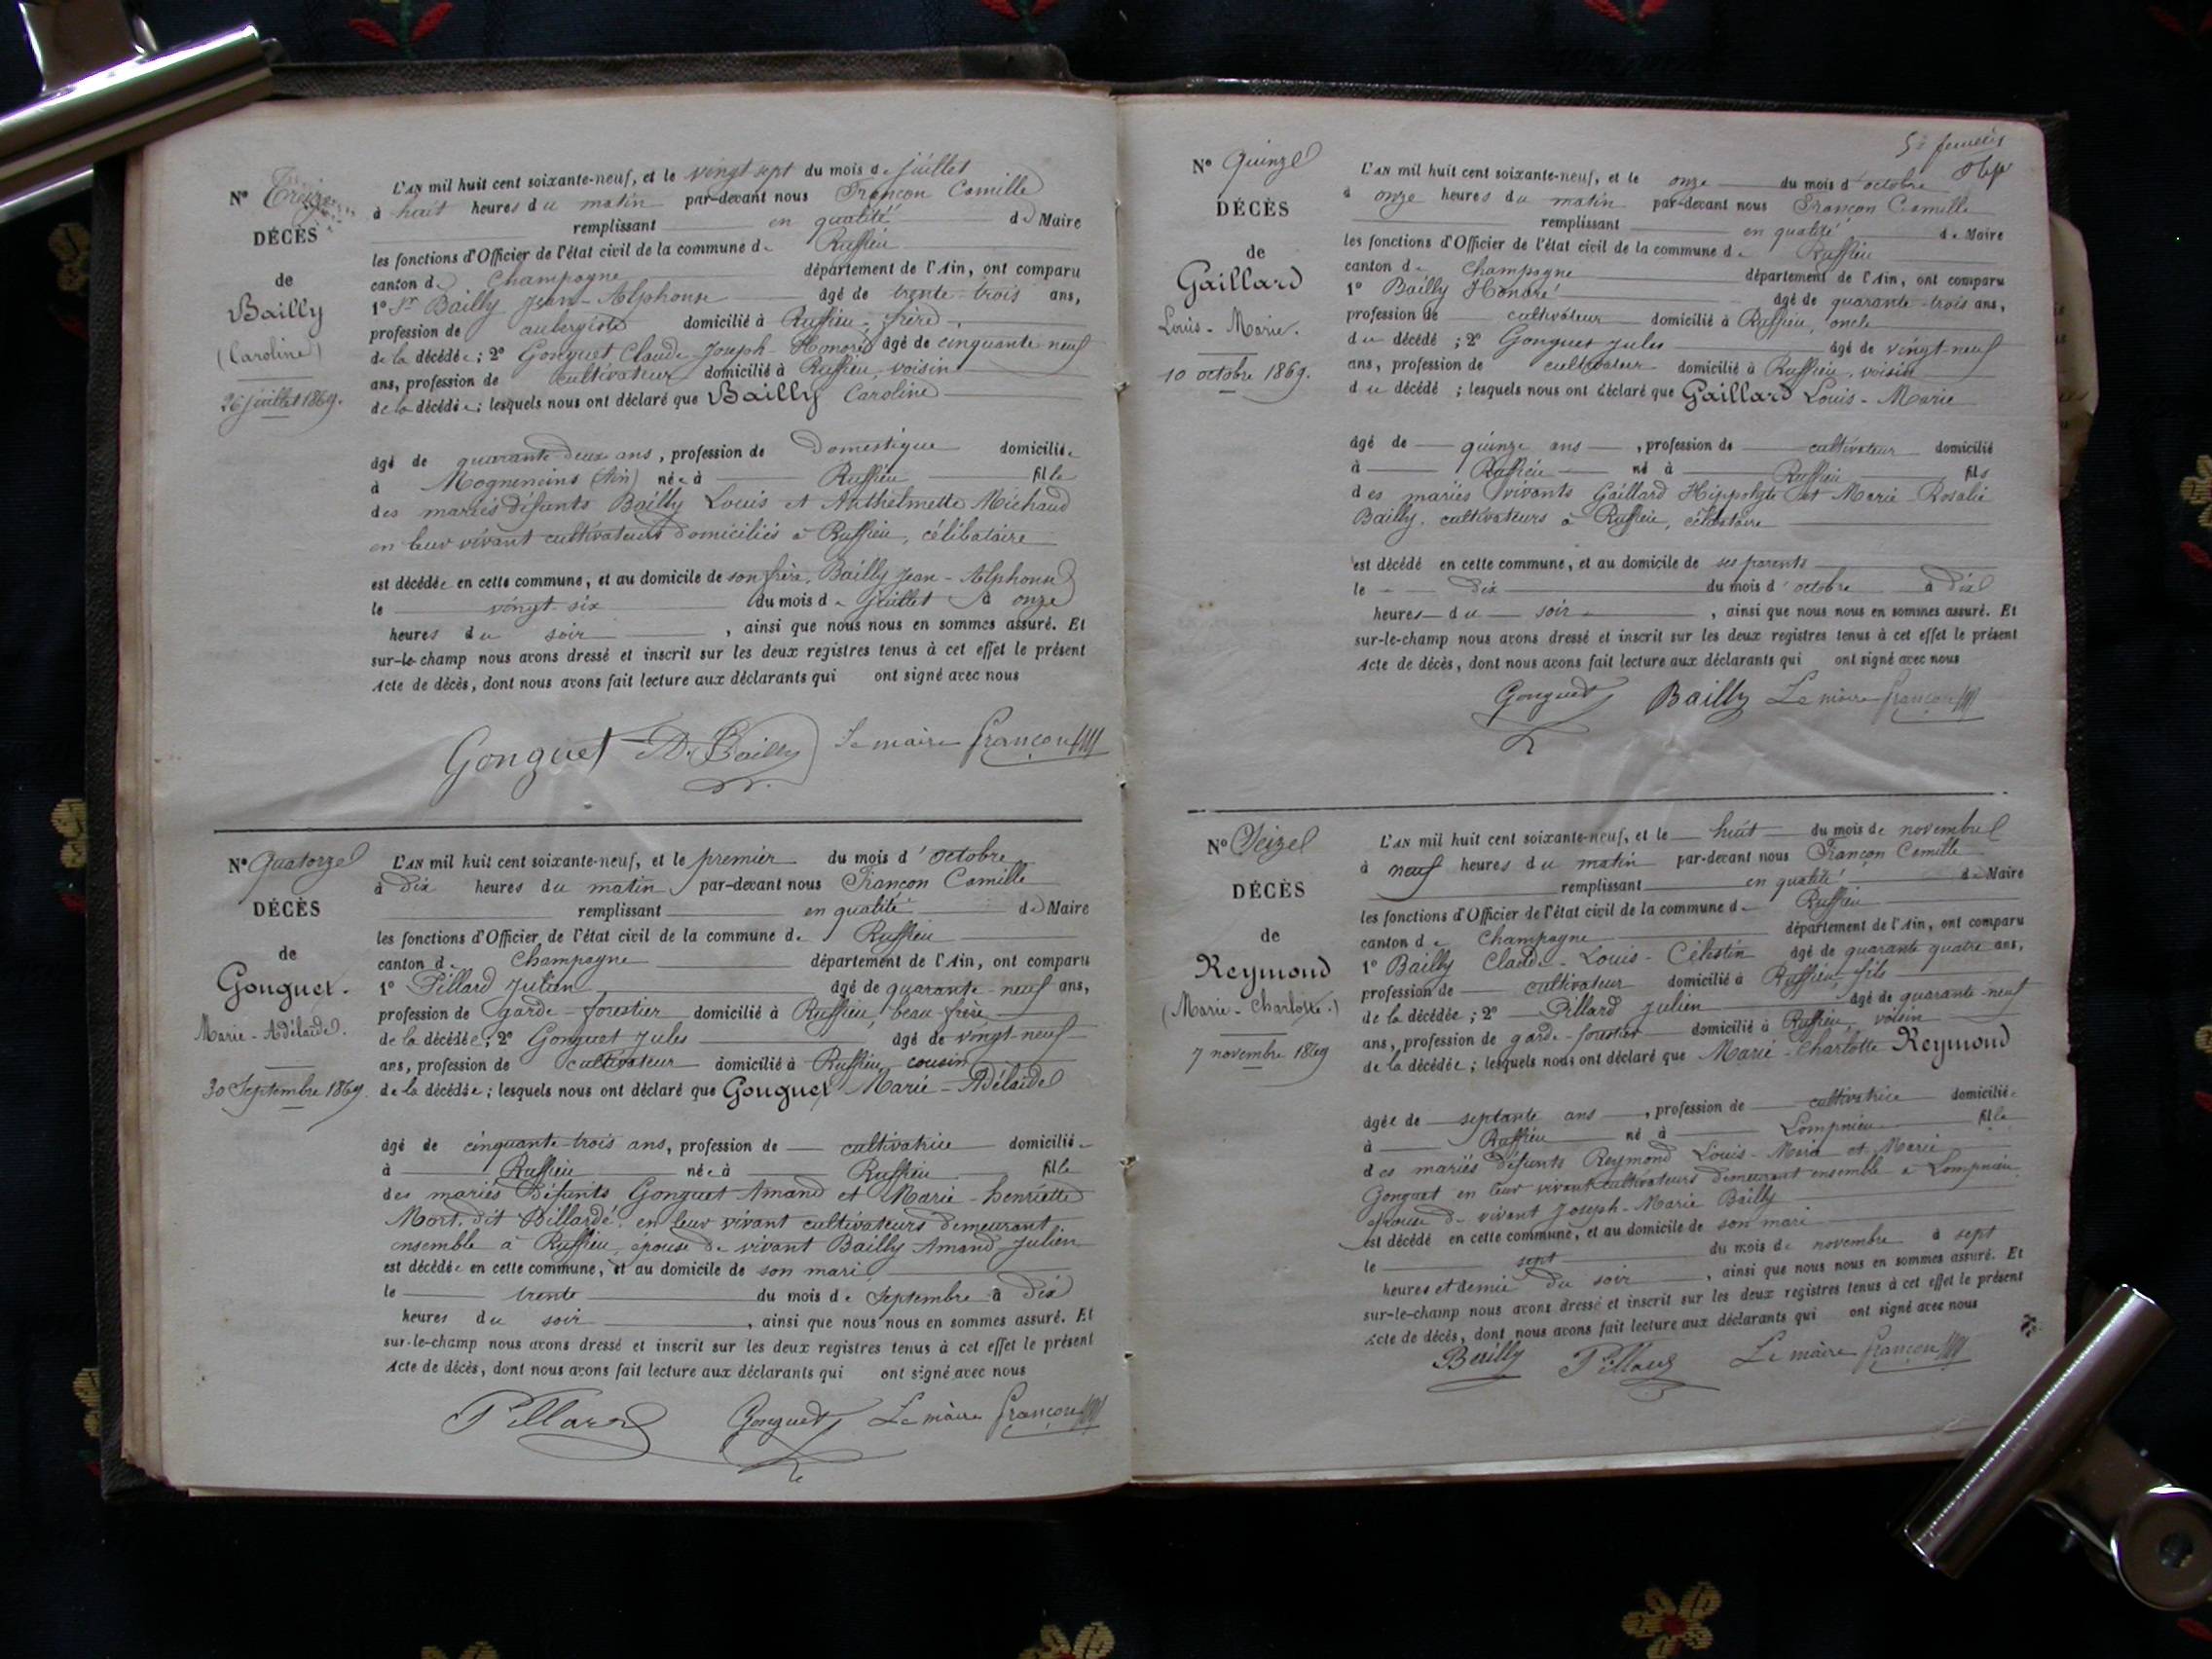 Nº Treize
DÉCÈS
de
Bailly
(Caroline)
26 juillet 1869.
L'AN mil huit cent soixante-neuf, et le vingt sept du mois de juillet
à huit heures du matin par-devant nous Françon Camille
remplissant en qualité de Maire
les fonctions d'Officier de l'état civil de la commune de Ruffieu
canton de Champagne département de l'Ain, ont comparu
1º Sr Bailly Jean-Alphonse âgé de trente-trois ans,
profession de aubergiste domicilié à Ruffieu, frère
de la décédée; 2º Gonguet Claude Joseph-Honoré âgé de cinquante neuf
ans, profession de cultivateur domicilié à Ruffieu, voisin
de la décédée; lesquels nous ont déclaré que Bailly Caroline
âgé de quarante-deux ans, profession de Domestique domiciliée
à Mogneneins (Ain) née à Ruffieu fille
des mariés défunts Bailly Louis et Anthelmette Michaud
en leur vivant cultivateurs domiciliés à Ruffieu, célibataire
est décédée en cette commune, et au domicile de son frère, Bailly Jean-Alphonse
le vingt six du mois de juillet à onze
heures du soir, ainsi que nous nous en sommes assuré. Et
sur-le-champ nous avons dressé et inscrit sur les deux registres tenus à cet effet le présent
Acte de décès, dont nous avons fait lecture aux déclarants qui ont signé avec nous
Gonguet Bailly Le maire françon
Nº Quatorze
DÉCÈS
de
Gonguet.
Marie-Adélaïde.
30 Septembre 1869.
L'AN mil huit cent soixante-neuf, et le premier du mois d'octobre
à dix heures du matin par-devant nous Françon Camille
remplissant en qualité de Maire
les fonctions d'Officier de l'état civil de la commune de Ruffieu
canton de Champagne département de l'Ain, ont comparu
1º Pillard Julien âgé de quarante-neuf ans,
profession de garde-forestier domicilié à Ruffieu, beau-frère
de la décédée; 2º Gonguet Jules âgé de vingt-neuf
ans, profession de cultivateur domicilié à Ruffieu cousin
de la décédée; lesquels nous ont déclaré que Gonguet Marie-Adélaïde
âgé de cinquante-trois ans, profession de cultivatrice domiciliée
à Ruffieu née à Ruffieu fille
des mariés défunts Gonguet Amand et Marie-henriette
Mort, dit Billardé, en leur vivant cultivateurs demeurant
ensemble à Ruffieu, épouse de vivant Bailly Amand Julien
est décédée en cette commune, et au domicile de son mari
le trente du mois de Septembre à dix
heures du soir, ainsi que nous nous en sommes assuré. Et
sur-le-champ nous avons dressé et inscrit sur les deux registres tenus à cet effet le présent
Acte de décès, dont nous avons fait lecture aux déclarants qui ont signé avec nous
Pillard Gonguet Le maire françon
5e feuillet
Nº Quinze
DÉCÈS
de
Gaillard
Louis-Marie.
10 octobre 1869.
L'AN mil huit cent soixante-neuf, et le onze du mois d'octobre
à onze heures du matin par-devant nous Françon Camille
remplissant en qualité de Maire
les fonctions d'Officier de l'état civil de la commune de Ruffieu
canton de Champagne département de l'Ain, ont comparu
1º Bailly Honoré âgé de quarante-trois ans,
profession de cultivateur domicilié à Ruffieu, oncle
du décédé; 2º Gonguet Jules âgé de vingt neuf
ans, profession de cultivateur domicilié à Ruffieu, voisin
du décédé; lesquels nous ont déclaré que Gaillard Louis-Marie
âgé de quinze ans, profession de cultivateur domicilié
à Ruffieu né à Ruffieu fils
des mariés vivants Gaillard Hippolyte et Marie Rosalie
Bailly, cultivateurs à Ruffieu, célibataire
est décédé en cette commune, et au domicile de ses parents
le dix du mois d'octobre à dix
heures du soir, ainsi que nous nous en sommes assuré. Et
sur-le-champ nous avons dressé et inscrit sur les deux registres tenus à cet effet le présent
Acte de décès, dont nous avons fait lecture aux déclarants qui ont signé avec nous
Gonguet Bailly Le maire françon
Nº Seize
DÉCÈS
de
Reymond
(Marie-Charlotte.)
7 novembre 1869
L'AN mil huit cent soixante-neuf, et le huit du mois de novembre
à neuf heures du matin par-devant nous Françon Camille
remplissant en qualité de Maire
les fonctions d'Officier de l'état civil de la commune de Ruffieu
canton de Champagne département de l'Ain, ont comparu
1º Bailly Claude-Louis-Célestin âgé de quarante quatre ans,
profession de cultivateur domicilié à Ruffieu, fils
de la décédée; 2º Pillard Julien âgé de quarante-neuf
ans, profession de garde-forestier domicilié à Ruffieu, voisin
de la décédée; lesquels nous ont déclaré que Marie-Charlotte Reymond
âgée de septante ans, profession de cultivatrice domiciliée
à Ruffieu né à Lompnieu fille
des mariés défunts Reymond Louis-Marie et Marie
Gonguet en leur vivant cultivateurs demeurant ensemble à Lompnieu
épouse de vivant Joseph-Marie Bailly
est décédé en cette commune, et au domicile de son mari
le sept du mois de novembre à sept
heures et demie du soir, ainsi que nous nous en sommes assuré. Et
sur-le-champ nous avons dressé et inscrit sur les deux registres tenus à cet effet le présent
Acte de décès, dont nous avons fait lecture aux déclarants qui ont signé avec nous
Bailly Pillard Le maire françon